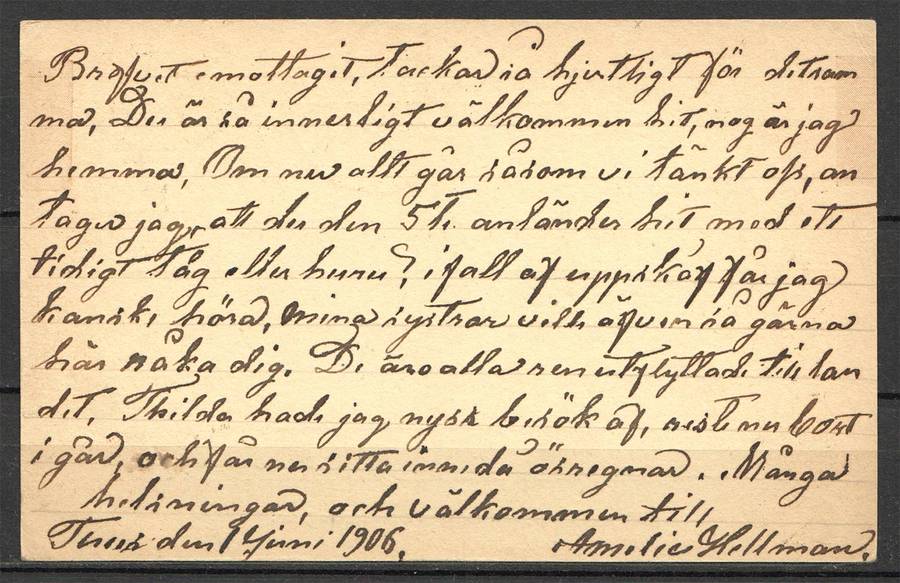 Brefvet emottagit, tackar så hjertligt för detsam
ma, Du är så innerligt välkommen hit, nog är jag
hemma, Om nu allt går såsom vi tänkt oss, an
tager jag, att du den 5te anländer hit med ett
tidigt tåg eller huru? ifall af uppskof får jag
kanske höra, mina systrar ville äfven så gärna
här råka dig. De äro alla ren utflyttade till lan
det, Thilda hade jag nyss besök af, reste nu bort
i går, och får nu sitta inne då ösregnar. Många
helsningar, och välkommen till
den 1 Juni 1906. Amelie Hellman.